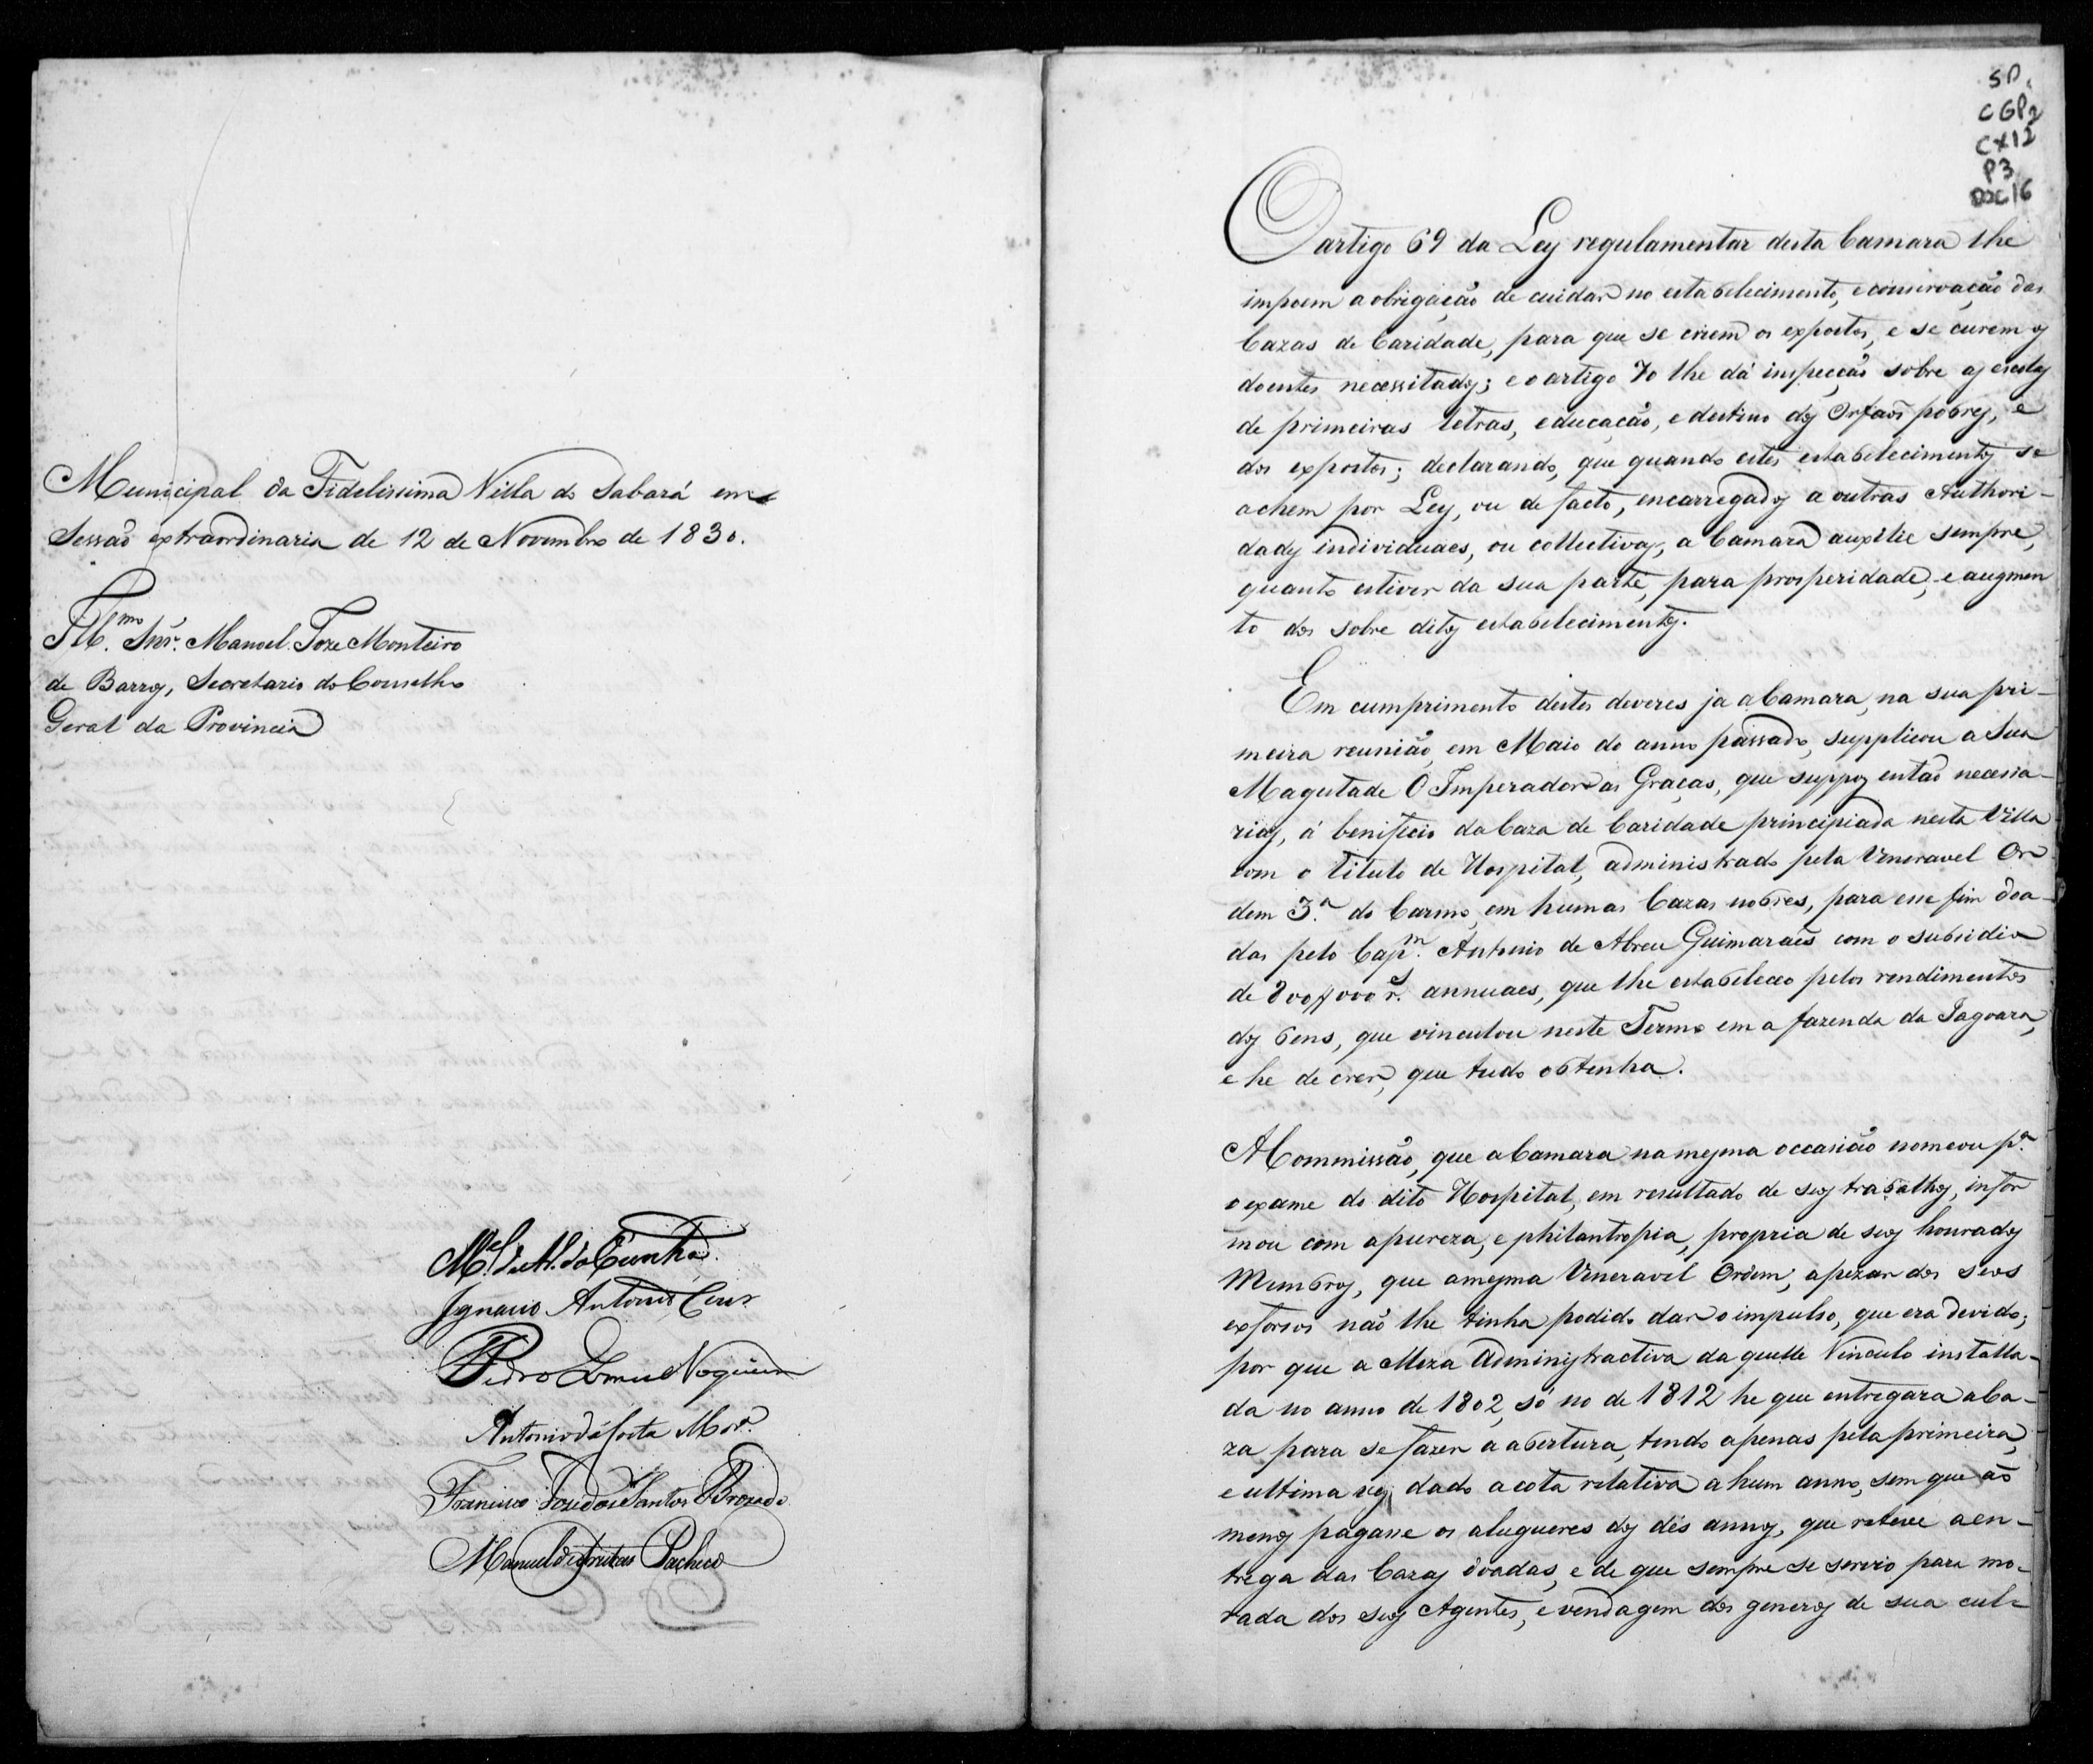 Municipal da Fidelissima Villa do Sabará em
Sessaõ extraordinaria de 12 de Novembro de 1830.
Ill.mo Snr. Manoel Joze Monteiro
de Barros, Secretario do Conselho
Geral da Provincia
M.el de da Cunha
Ignacio Antonio Cesar
Pedro Gomes Nogueira
Antonio da Costa Mor.a
Francisco Joze dos Santos Brozado
Manuel de Freitas Pacheco
SP.
CGP2
CX12
P3
Doc16
O artigo 69 da Ley regulamentar desta Camara lhe
impoem a obrigação de cuidar no estabelecimento, e conservação das
Cazas de Caridade, para que se criem os expostos, e se curem os
doentes necessitados; e o artigo 70 lhe dá inspecção sobre as escolas
de primeiras letras, educação, e destino dos Orfaõs pobres, e
dos expostos; declarando, que quando estes estabelecimentos se
achem por Ley, ou de facto, encarregados a outras Authori-
dades individuaes, ou collectivas, a Camara auxilie sempre,
quanto estiver da sua parte, para prosperidade, e augmen
to dos sobre ditos estabelecimentos.
Em cumprimento destes deveres ja a Camara, na sua pri-
meira reunião, em Maio do anno passado, supplicou a Sua
Magestade O Imperador as Graças, que suppoz entaõ necessa-
rias, á beneficio da Caza de Caridade principiada nesta Villa
com o titulo de Hospital, administrado pela Veneravel Or
dem 3.a do Carmo, em humas Cazas nobres, para esse fim doa-
das pelo Cap.m Antonio de Abreu Guimaraẽs com o subsidio
de 800$000 r.s annuaes, que lhe estabeleceo pelos rendimentos
dos bens, que vinculou neste Termo em a fazenda da Jagoara,
e he de crer, que tudo obtenha.
A Commissão, que a Camara na mesma occasião nomeou p.a
o exame do dito Hospital, em resultado de seos trabalhos, infor
mou com a pureza, e philantropia, propria de seos honrados
Membros, que a mesma Veneravel Ordem, apezar dos seos
exforsos naõ lhe tinha podido dar o impulso, que era devido;
por que a Meza Administractiva daquelle Vinculo installa-
da no anno de 1802, só no de 1812 he que entregara a Ca-
za para se fazer a abertura, tendo apenas pela primeira,
e ultima vez dado a cota relativa a hum anno, sem que ao
menos pagasse os alugueres dos dés annos, que reteve a en-
trega das Cazas doadas, e de que sempre se servio para mo-
rada dos seos Agentes, e vendagem dos generos de sua cul-